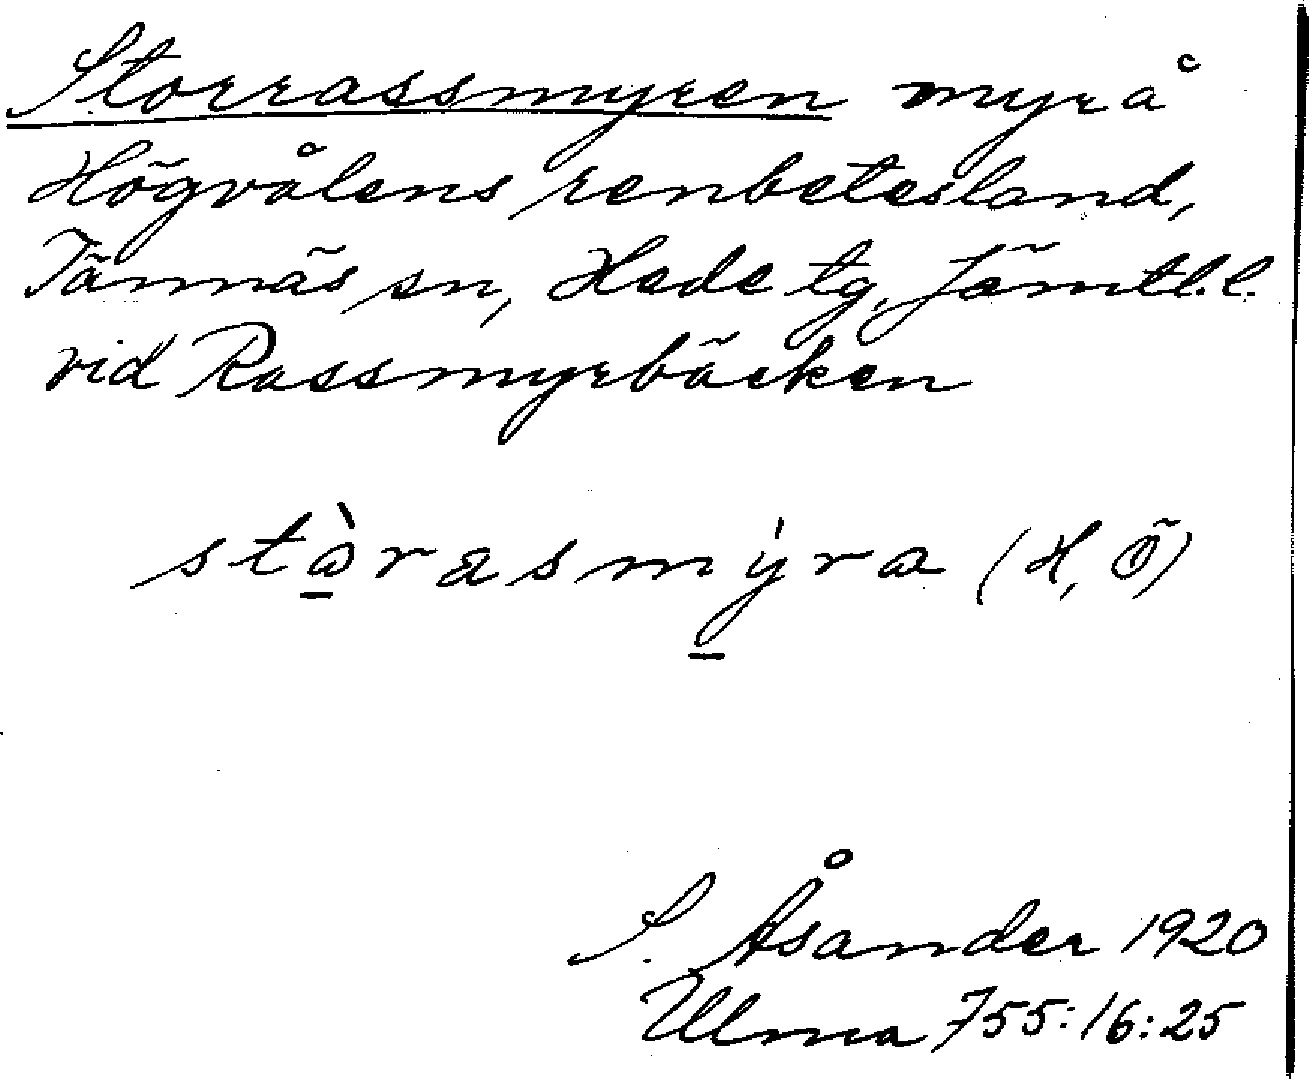 Storrassmyren myr å
Högvålens renbetesland,
Tännäs sn, Hede tg, Jämtl.l.
vid Rassmyrbäcken
stàrasmýra (H, Ö)
S. Åsander 1920
Ulma 755:16:25